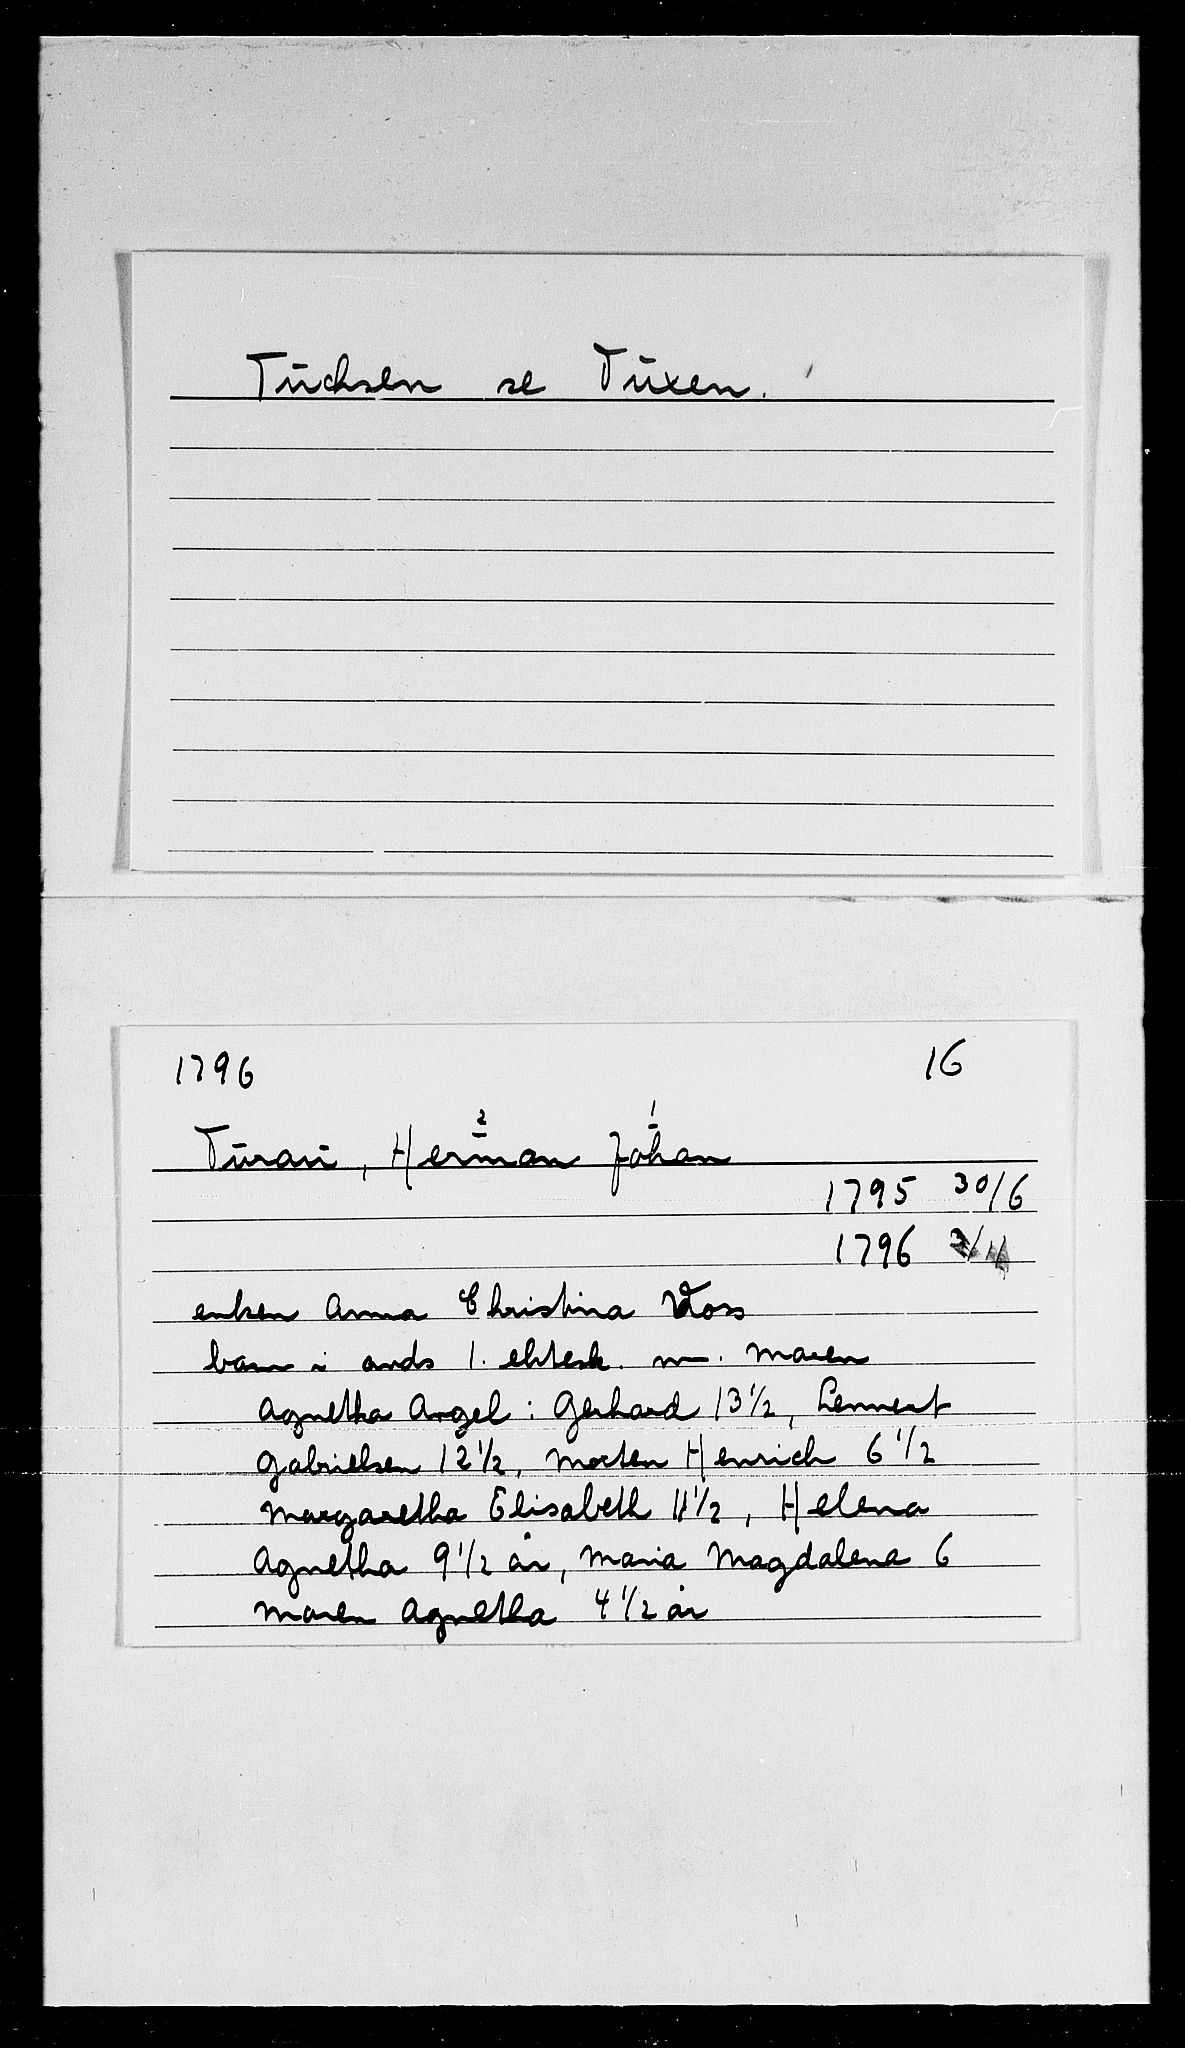 Tūchsen se Tūxen.
1796 16
Tūraū, Herman Johan
2 1
1795 30/6
1796
enken Anna Christina Voss
barn i avds 1. ektesk. m. Maren
Agnetha Angel: Gerhard 13 1/2, Lennert
Gabrielsen 12 1/2, Morten Henrich 6 1/2
Margaretha Elisabeth 11 1/2, Helena
Agnetha 9 1/2 år, Maria Magdalena 6
Maren Agnetha 4 1/2 år